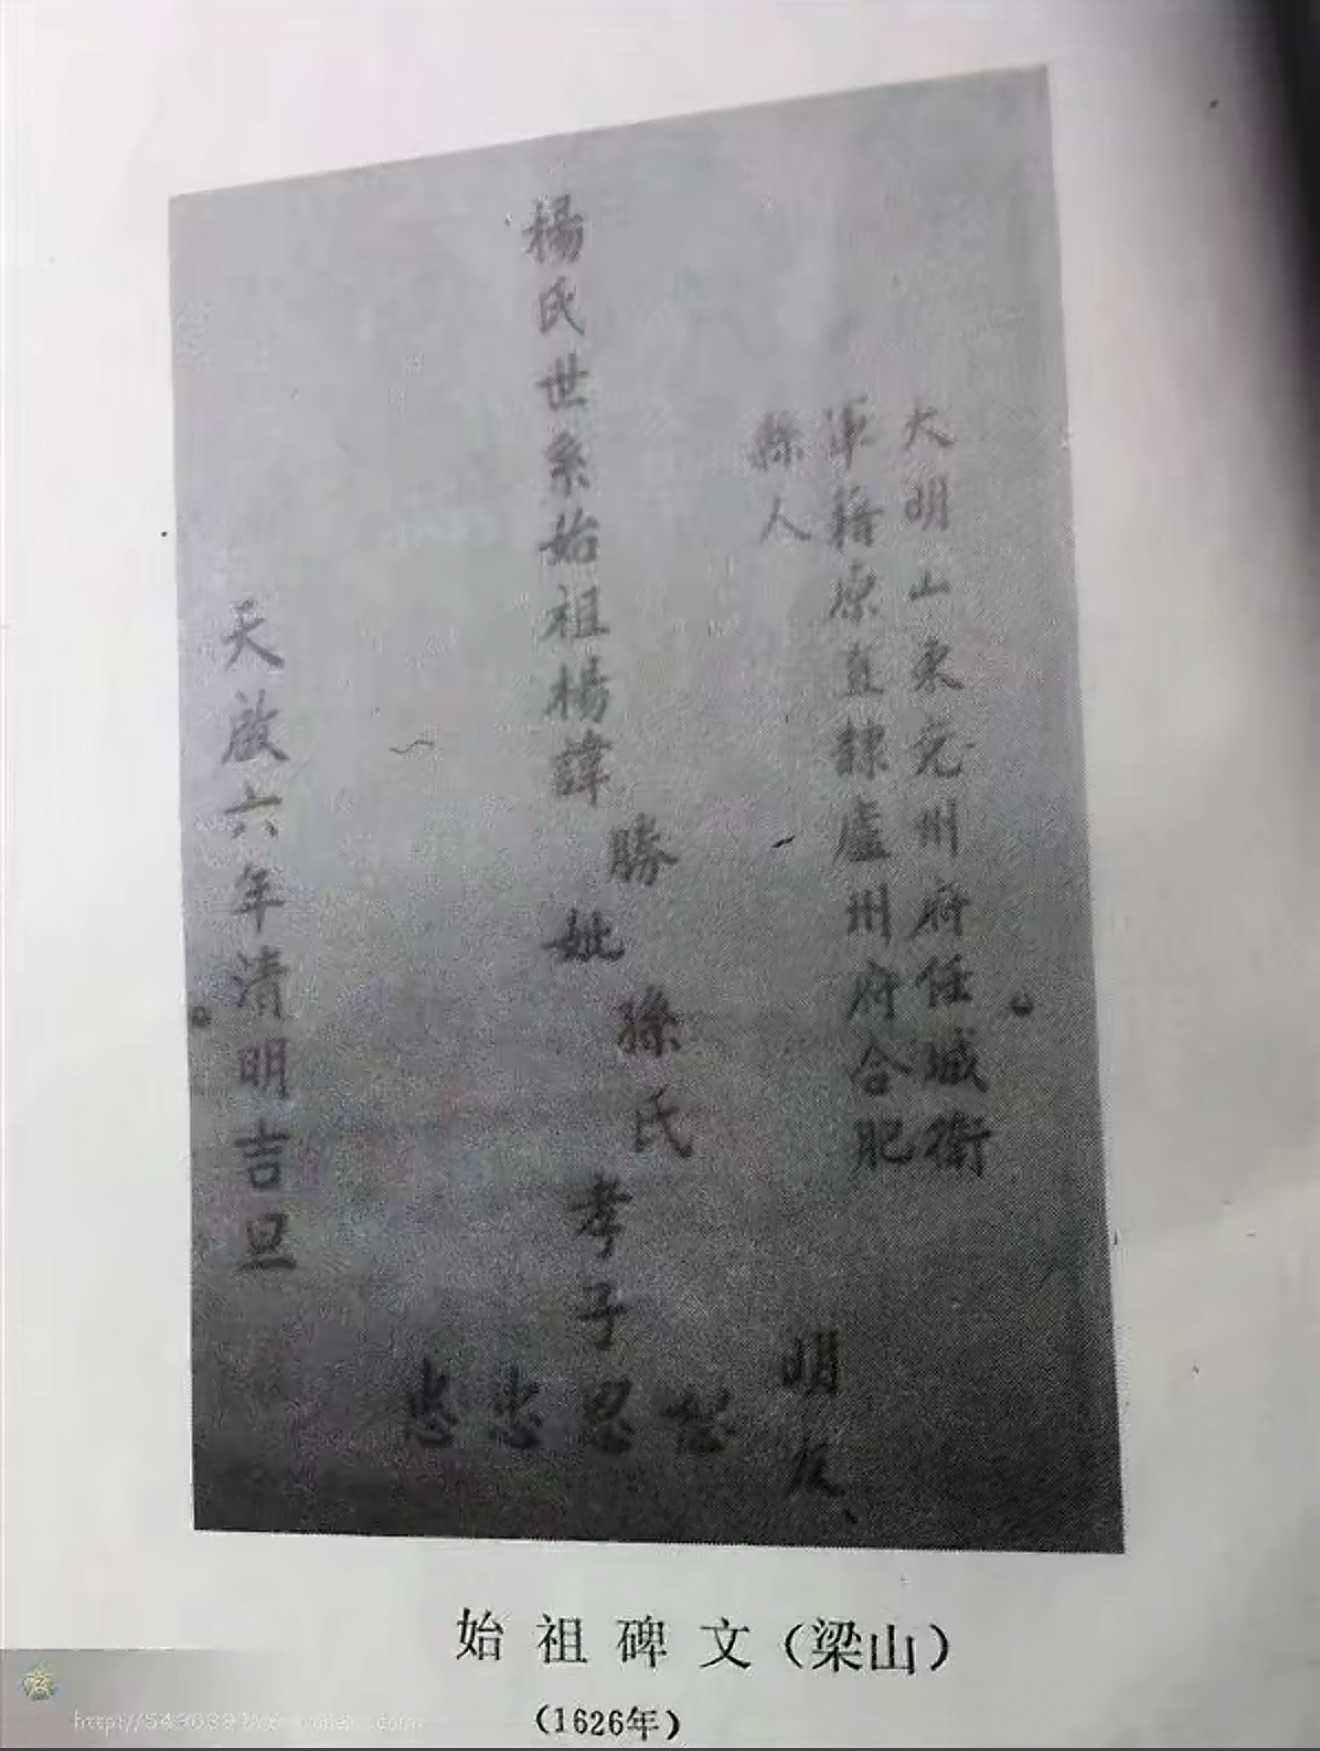 大明山東兖州府任城衛
軍籍原直隸廬州府合肥
縣人
楊氏世系始祖楊諱
勝
妣
孫氏
孝子
明友、
恕
忍
忠
忠
天啟六年清明吉旦
始祖碑文（梁山）
（1626年）